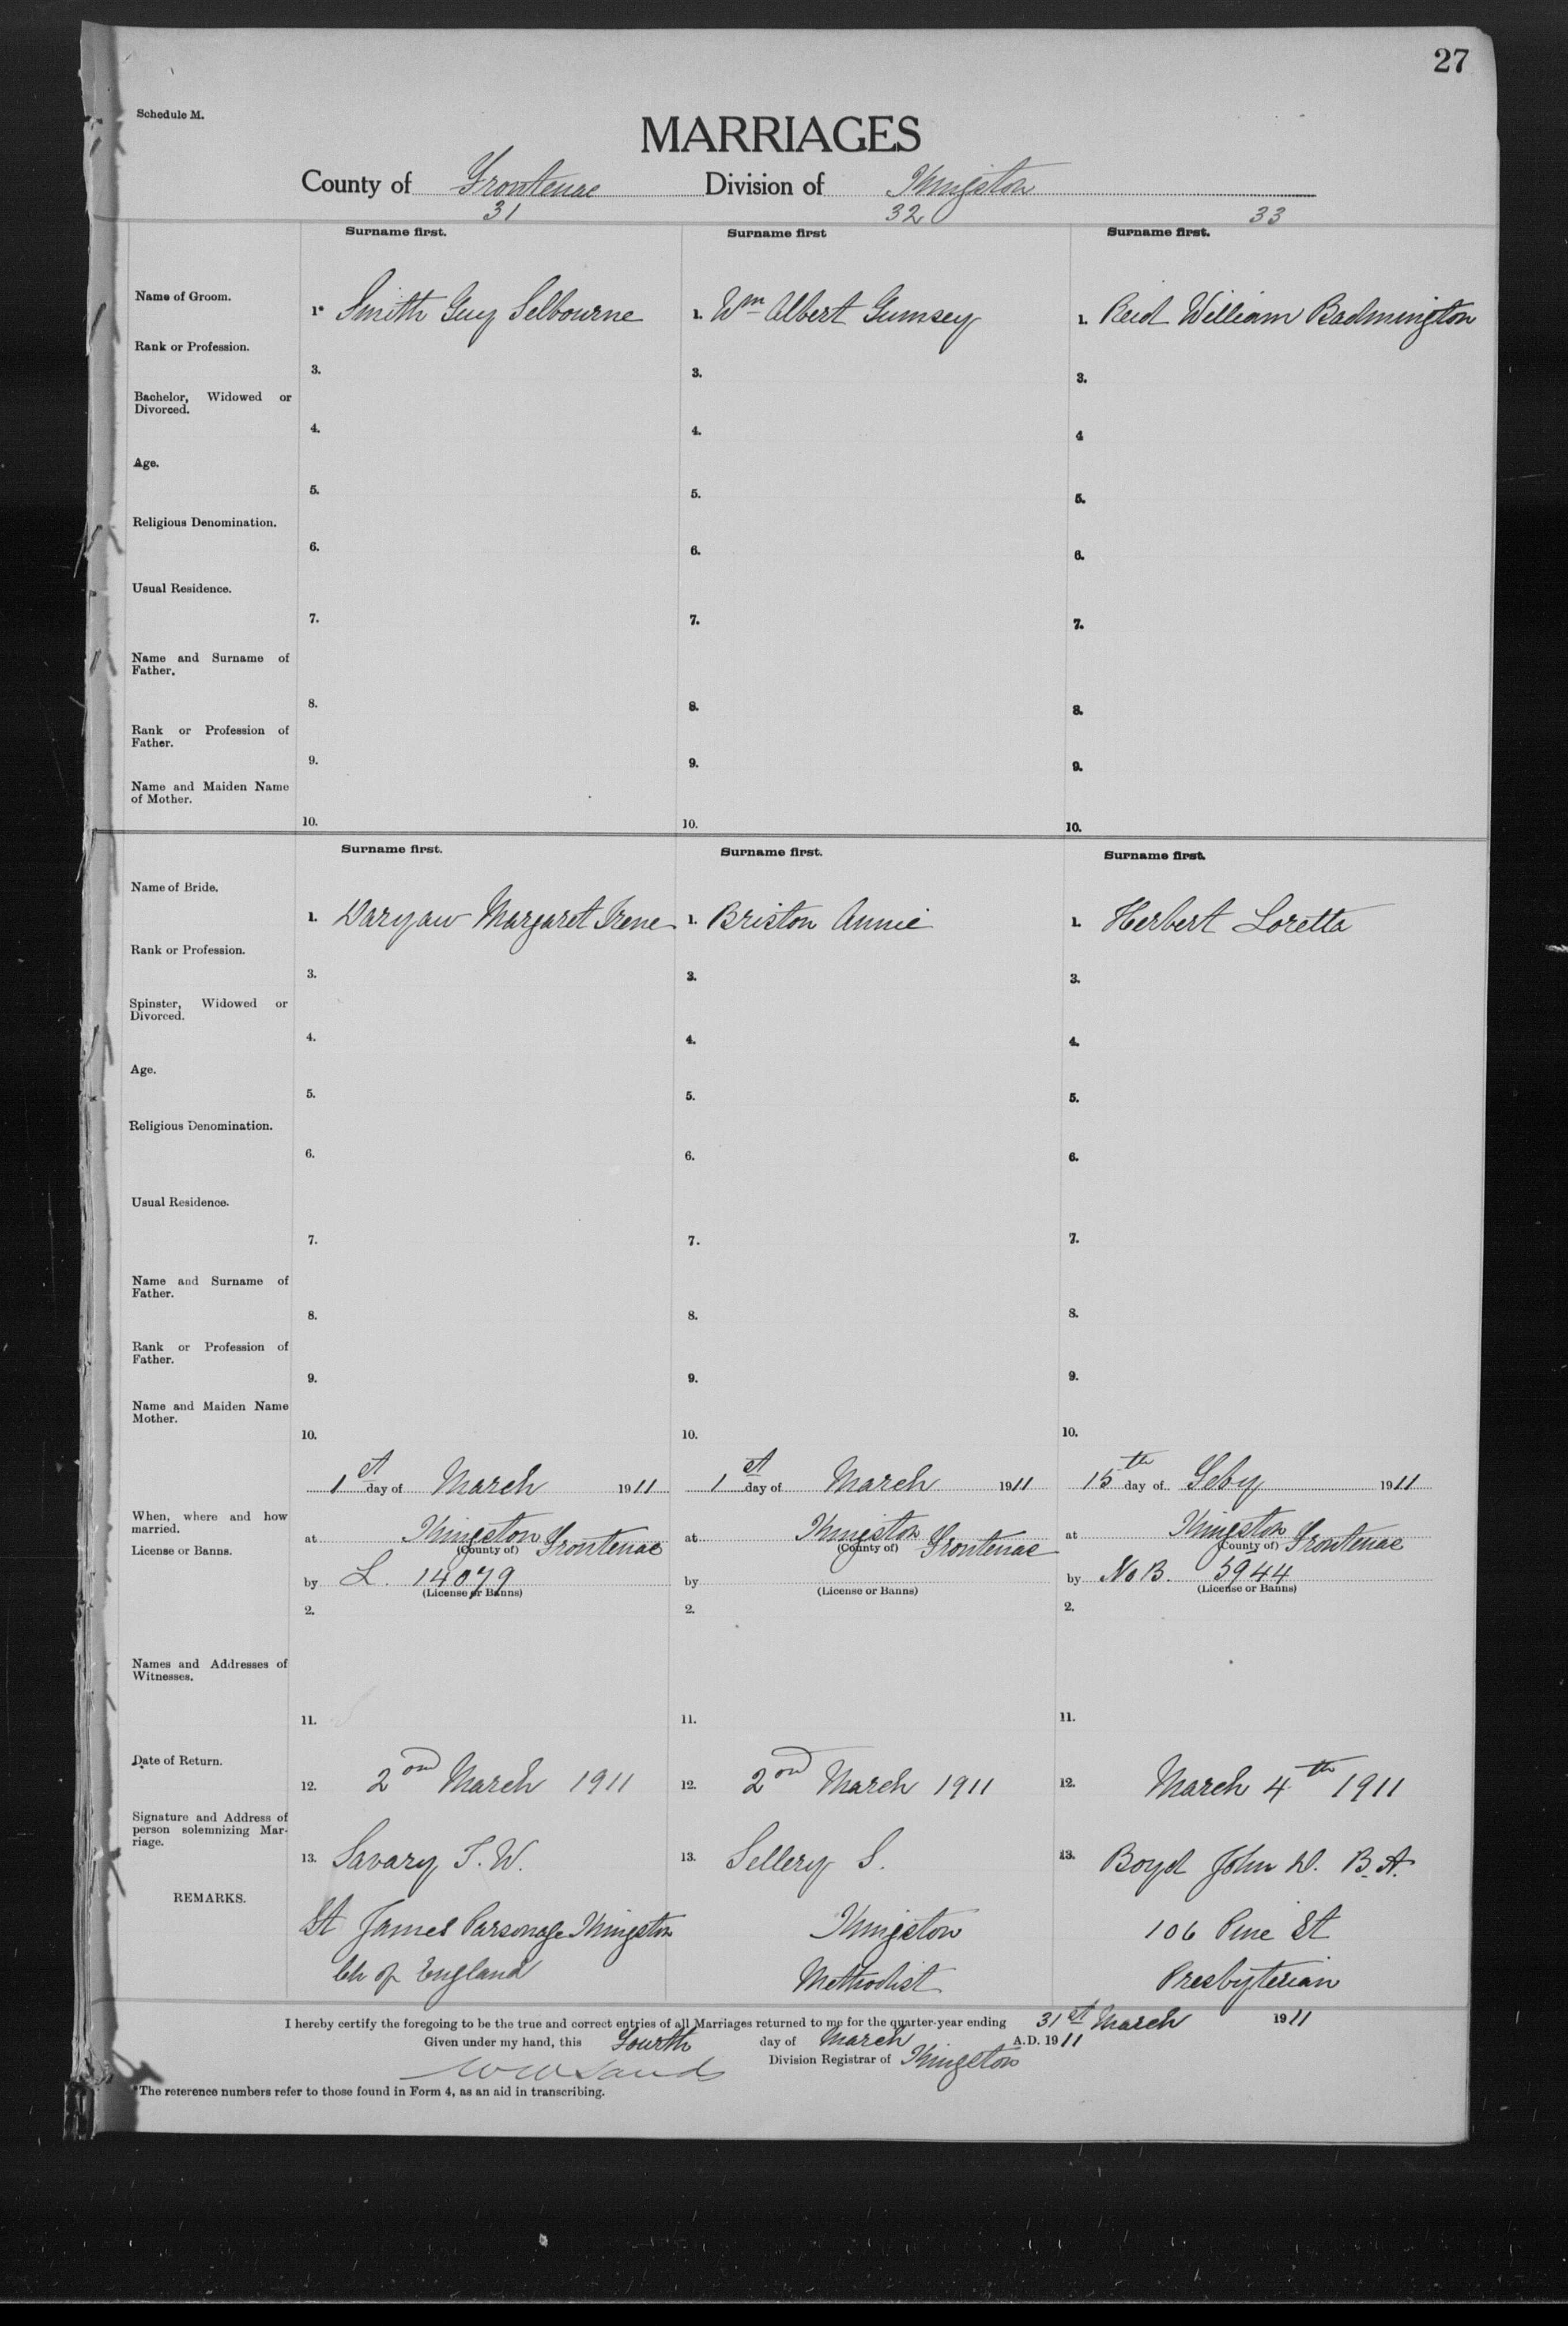 27
Schedule M.
MARRIAGES
County of Frontenac Division of Kingston
31 32 33
Surname first. Surname first Surname first.
Name of Groom.
1* Smith Guy Selbourne 1. Wm Albert Gumsey 1. Reid William Badmington
Rank or Profession.
3. 3. 3.
Bachelor, Widowed or
Divorced.
4. 4. 4
Age.
5. 5. 5.
Religious Denomination.
6. 6. 6.
Usual Residence.
7. 7. 7.
Name and Surname of
Father.
8. 8. 8.
Rank or Profession of
Father.
9. 9. 9.
Name and Maiden Name
of Mother.
10. 10. 10.
Surname first. Surname first. Surname first.
Name of Bride.
1. Daryaw Margaret Irene 1. Briston Annie 1. Herbert Loretta
Rank or Profession.
3. 3. 3.
Spinster, Widowed or
Divorced.
4. 4. 4.
Age.
5. 5. 5.
Religious Denomination.
6. 6. 6.
Usual Residence.
7. 7. 7.
Name and Surname of
Father.
8. 8. 8.
Rank or Profession of
Father.
9. 9. 9.
Name and Maiden Name
Mother.
10. 10. 10.
1st day of March 1911 1st day of March 1911 15th day of Feby 1911
When, where and how
married.
at Kingston Frontenac at Kingston Frontenac at Kingston Frontenac
(County of) (County of) (County of)
License or Banns.
by L. 14079 by by No B. 5944
(License or Banns) (License or Banns) (License or Banns)
2. 2. 2.
Names and Addresses of
Witnesses.
11. 11. 11.
Date of Return.
12. 2nd March 1911 12. 2nd March 1911 12. March 4th 1911
Signature and Address of
person solemnizing Mar-
riage.
13. Savary T. W. 13. Sellery S. 13. Boyd John D. B.A.
REMARKS.
St James Parsonage Kingston Kingston 106 Pine St
Ch of England Methodist Presbyterian
I hereby certify the foregoing to be the true and correct entries of all Marriages returned to me for the quarter-year ending 31st March 1911
Given under my hand, this Fourth day of March A.D. 1911
W W Sands Division Registrar of Kingston
*The reference numbers refer to those found in Form 4, as an aid in transcribing.